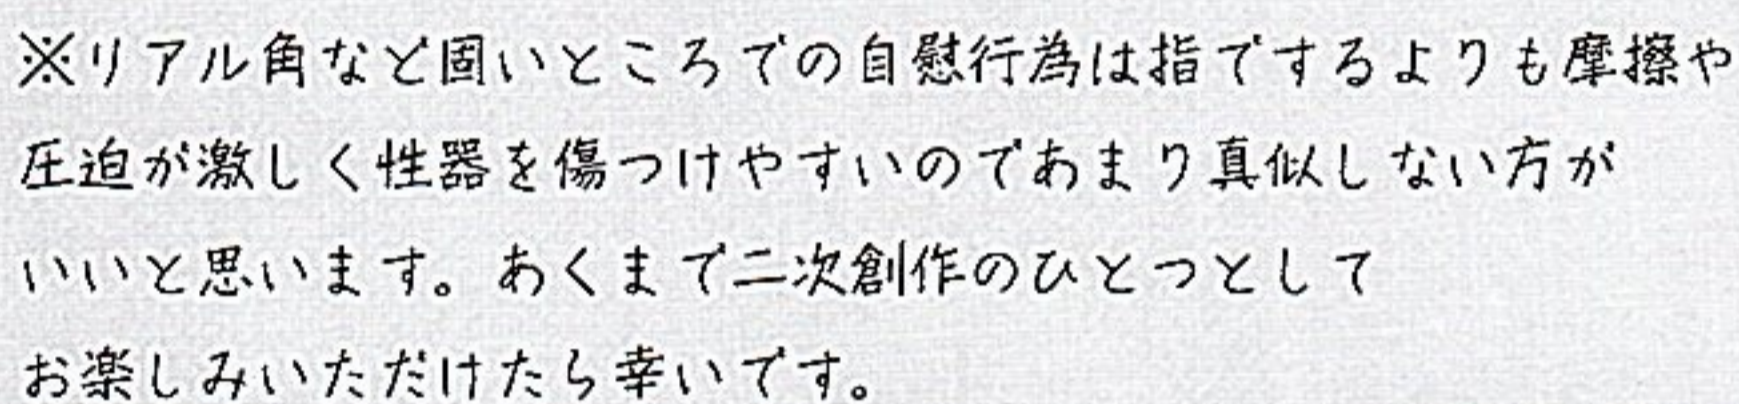 ※リアル角など固いところでの自慰行為は指でするよりも摩擦や
圧迫が激しく性器を傷つけやすいのであまり真似しない方が
いいと思います。あくまで二次創作のひとつとして
お楽しみいただけたら幸いです。